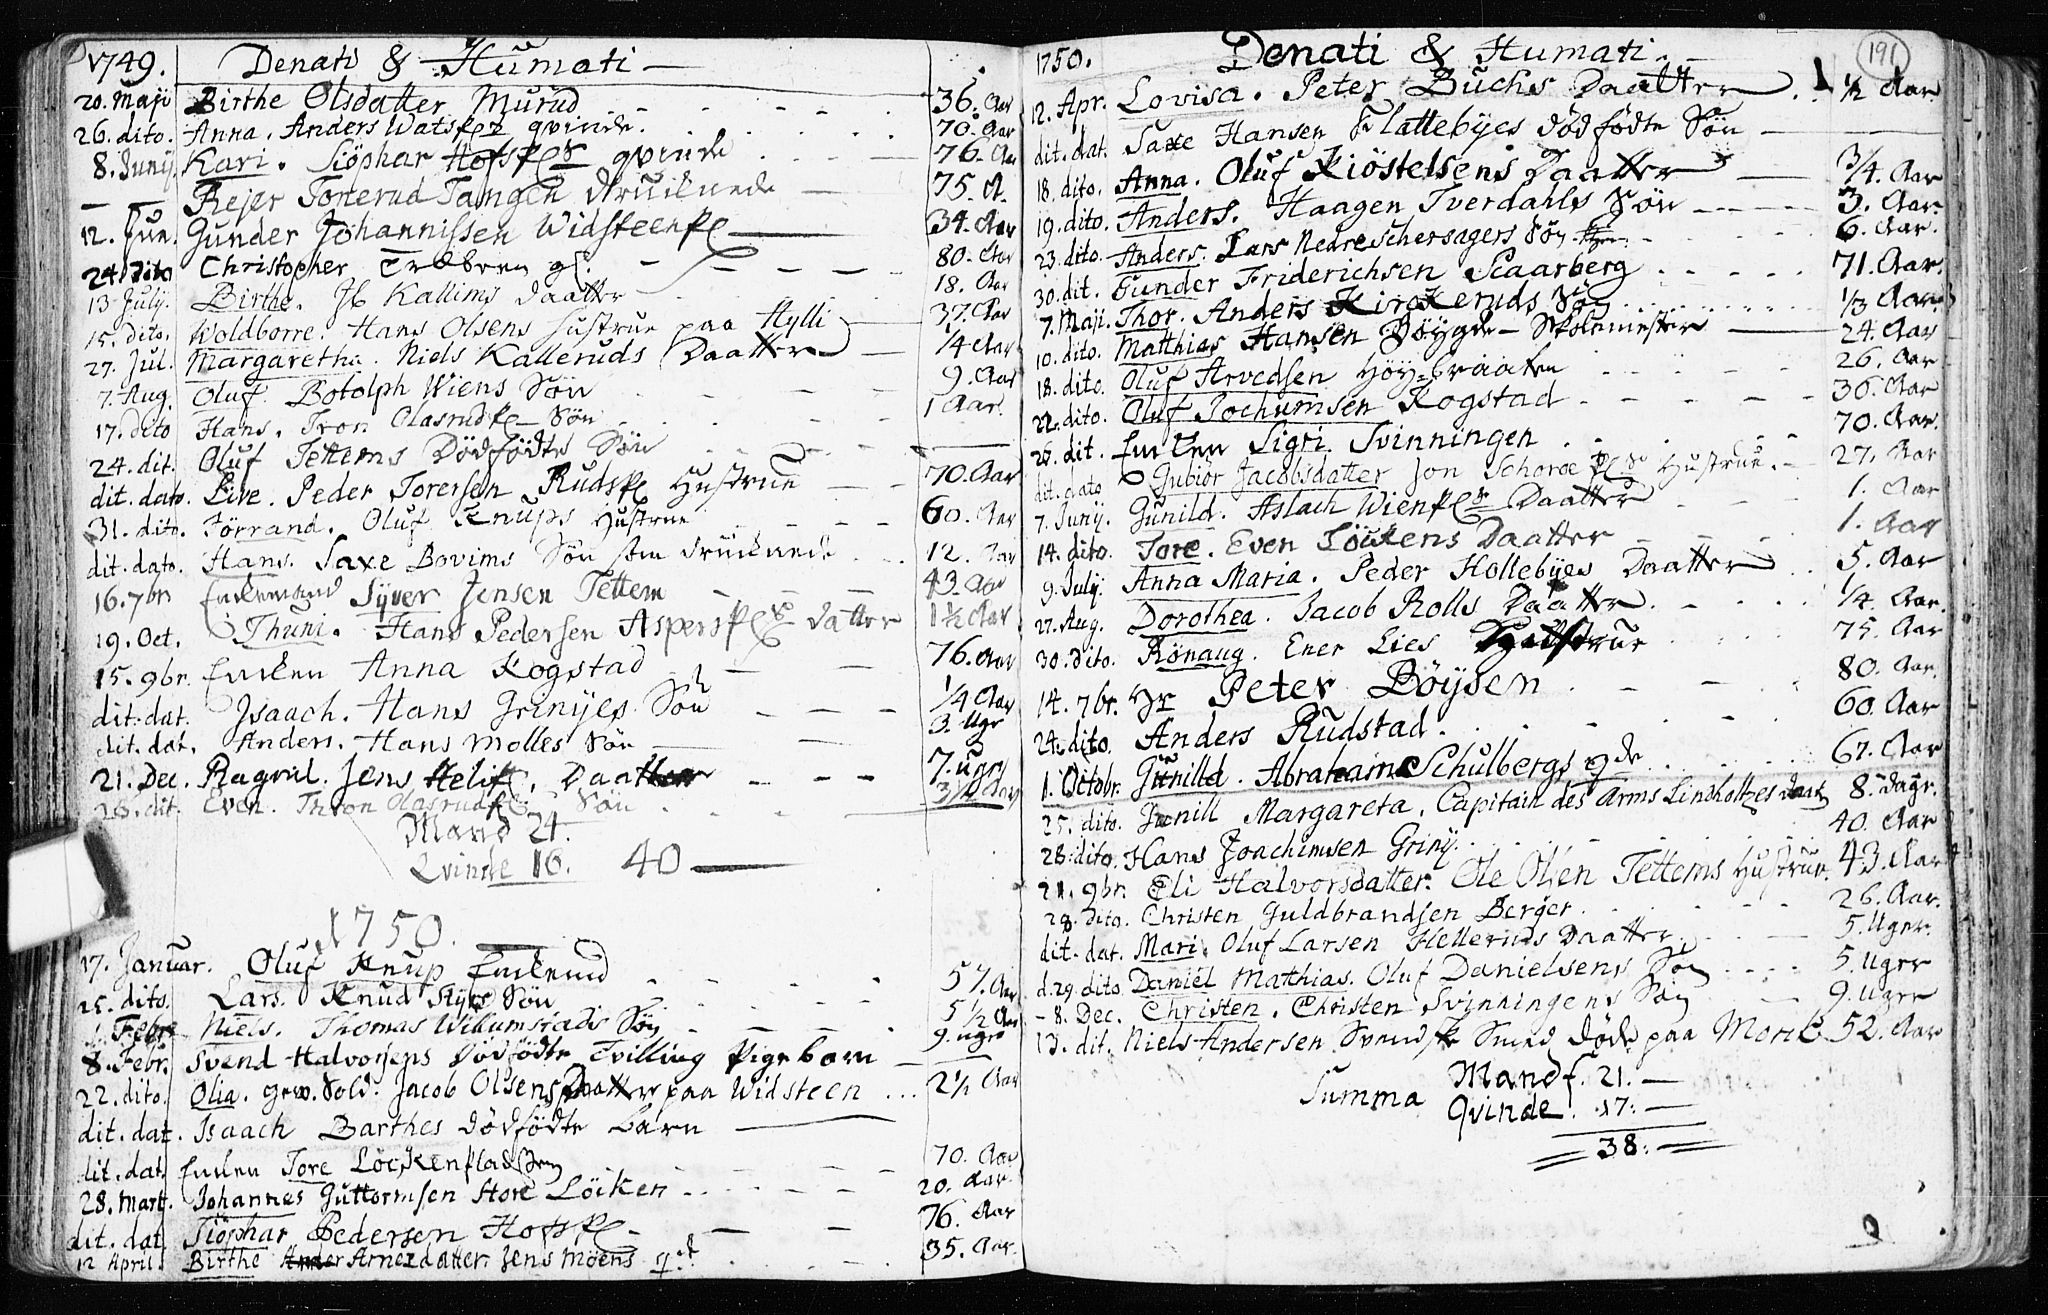 1749. Denati & Humati
20. Maji Birthe Olsdatter Murud 36. Aar
26. dito. Anna. Anders Watspl qvinde. 70. Aar
8. Junij. Kari. Siöphar Hofspl qvinde 76. Aar
Rejer Tonerud Tangen druknede 75. A.
12. Jun. Gunder Johannissen Widsteenpl 34. Aar
24. dito Christopher gl. 80. Aar
13 July. Birthe. Jb Kallims daatter 18. Aar
15. dito. Woldborre. Hans Olsens hustrue paa Hylli 37. Aar
27. Jul. Margaretha. Niels Kalleruds Daatter 1/4 Aar
7. Aug. Oluf. Botolph Wiens Sön 9. Aar
17. dito Hans. Tron Olasrudpl Sön 1 Aar.
24. dit. Oluf Tettems Dödfödte Sön
dit. dato. Live. Peder Torersen Rudspl Hustrue 70. Aar
31. dito. Torrand. Oluf Knups Hustrue 60. Aar
dit. dato. Hans. Saxe Bovims Sön som druknede 12. Aar
16. 7br Enkemand Syver Jensen Tettem 43. Aar
19. Oct. Thuni. Hans Pedersen Asperspl datter 1 1/2 Aar
15. 9br. Enken Anna Kogstad 76. Aar
dit. dat. Jsaach. Hans Grinijes Sön 1/4 Aar
dit. dat. Anders. Hans Molles Sön 3. Ugr
21. Dec. Ragnil. Jens Helipl. Daatter 7. ugr
28. dit. Even. Thron Olasrudpl Sön 3/4 Aar
Mand 24.
Qvinde 16. 40
1750.
17. Januar. Oluf Knup Enkemd 57. Aar
25. dito. Lars. Knud Styrs Sön 5 1/2 Aar
1. Febr Niels. Thomas Willumstads Sön 9. ugr
8. Febr. Svend Halvorsens Dödfödte Tvilling Pigebarn
22. dito. Olia. gew. Sold. Jacob Olsens Daatter paa Widsteen 2 1/2 Aar
dit. dat. Isaach Barthes dödfödte barn
dit. dat. Enken Tore Löckenpladsen 70. Aar
28. Mart. Johannes Guttormsen Store Löiken 20. Aar
dit. dat. Siöphar Pedersen Hofspl 76. Aar
12 April Birthe Arnesdatter. Jens Moens qd. 35. Aar.
1750. Denati & Humati. 191
12. Apr. Lovisa. Peter Buchs Daatter 1 1/2 Aar
dit. dat. Saxe Hansen Flattebyes dödfödte Sön
18. dito. Anna. Oluf Kiöstelsens Daatter 3/4. Aar
19. dito. Anders. Haagen Tverdahls Sön 3. Aar.
23. dito. Anders. Lars Nedre Schersagers Sön 6. Aar.
30. dit. Gunder Friderichsen Scaarberg 71. Aar.
7. Maji. Thor. Anders Kirkeruds Sön 1/3 Aar
10. dito. Matthias Hansen Döygde Skolemester 24. Aar
18. dito. Oluf Arvedsen Höy-braaten 26. Aar
22. dito. Oluf Jochumsen Kogstad 36. Aar
26. dit. Enken Sigri. Svinningen 70. Aar.
dit. dato Gubiör Jacobsdatter Jon Schoroe pl Hustrue. 27. Aar
7. Junij. Gunild. Aslach Wienpl Daatter 1. Aar
14. dito. Tore. Even Löikens Daatter 1. Aar
9. July. Anna Maria. Peder Hollebyes Daatter 5. Aar
27. Aug. Dorothea. Jacob Rolls Daatter. 1/4. Aar.
30. dito. Rönaug. Ener Lies Hustrue 75. Aar
14. 7br. Hr Peter Böysen 80. Aar.
24. dito. Anders Rudstad. 60. Aar
1. Octobr. Gunild. Abraham Schulbergs qde 67. Aar
25. dito. Gunill Margareta. Capitain des Arms Lindholtzes daat 8. dagr.
28. dito. Hans Joachimsen Griny 40. Aar
21. 9br. Eli Halvorsdatter. Ole Olsen Tettems Hustrue. 43. Aar
28. dito. Christen Guldbrandsen Berger. 26. Aar.
dit. dat. Mari. Oluf Larsen Helleruds Daatter. 5. Ugr.
d. 29. dito. Daniel Mathias. Oluf Danielsens Sön 5. Ugr
8. Dec. Christen. Christen Svinningens Sön 9. Ugr
13. dit. Niels Andersen Svensk Smed döde paa 52. Aar
Mandf. 21.
Summa
Qvinde. 17.
38.